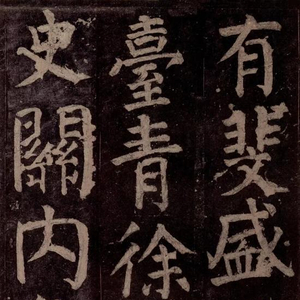 有斐盛
臺青徐
史關内